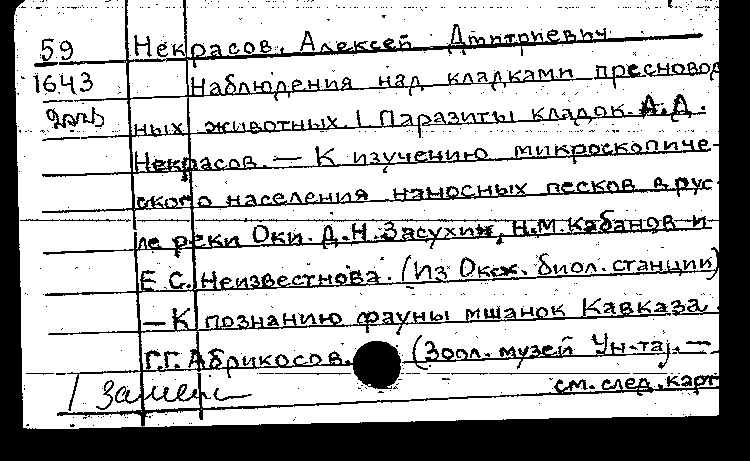 59 Некрасов, Алексей Дмитриевич
1643 Наблюдения над кладками пресновод
ных животных. I Паразиты кладок. А.Д.
Некрасов. — К изучению микроскопиче-
ского населения наносных песков в рус
ле реки Оки. Д.Н. Засухин, Н.М. Кабанов и
Е.С. Неизвестнова. (Из Окск. биол. станции)
— К познанию фауны мшанок Кавказа.
Г.Г. Абрикосов. (Зоол. музей Ун-та). —
см. след. карт